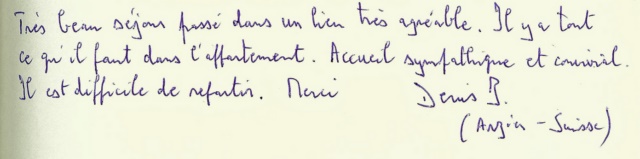 Très beau séjour passé dans un lieu très agréable. Il y a tout
ce qu'il faut dans l'appartement. Accueil sympathique et convivial.
Il est difficile de repartir. Merci Denis B.
( - Suisse)